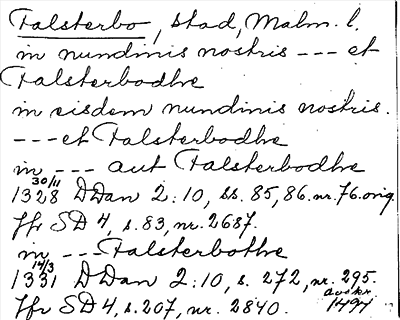 Falsterbo, stad, Malm. l.
in nundinis nostris --- et
Falsterbodhe
in eisdem nundinis nostris.
--- et Falsterbodhe
in --- aut Falsterbodhe
30/11
1328 DDan 2:10, ss. 85, 86. nr. 76. orig.
Jfr SD 4, s. 83, nr. 2687.
in --- Falsterbothe
14/3
1331 DDan 2:10, s. 272, nr. 295.
avskr.
Jfr SD 4, s. 207, nr. 2840. 1494